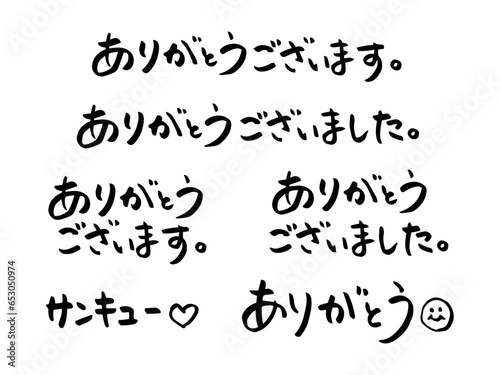 ありがとうございます。
ありがとうございました。
ありがとう
ございます。
ありがとう
ございました。
サンキュー♡
ありがとう
Adobe Stock | #653050974
Adobe Stock